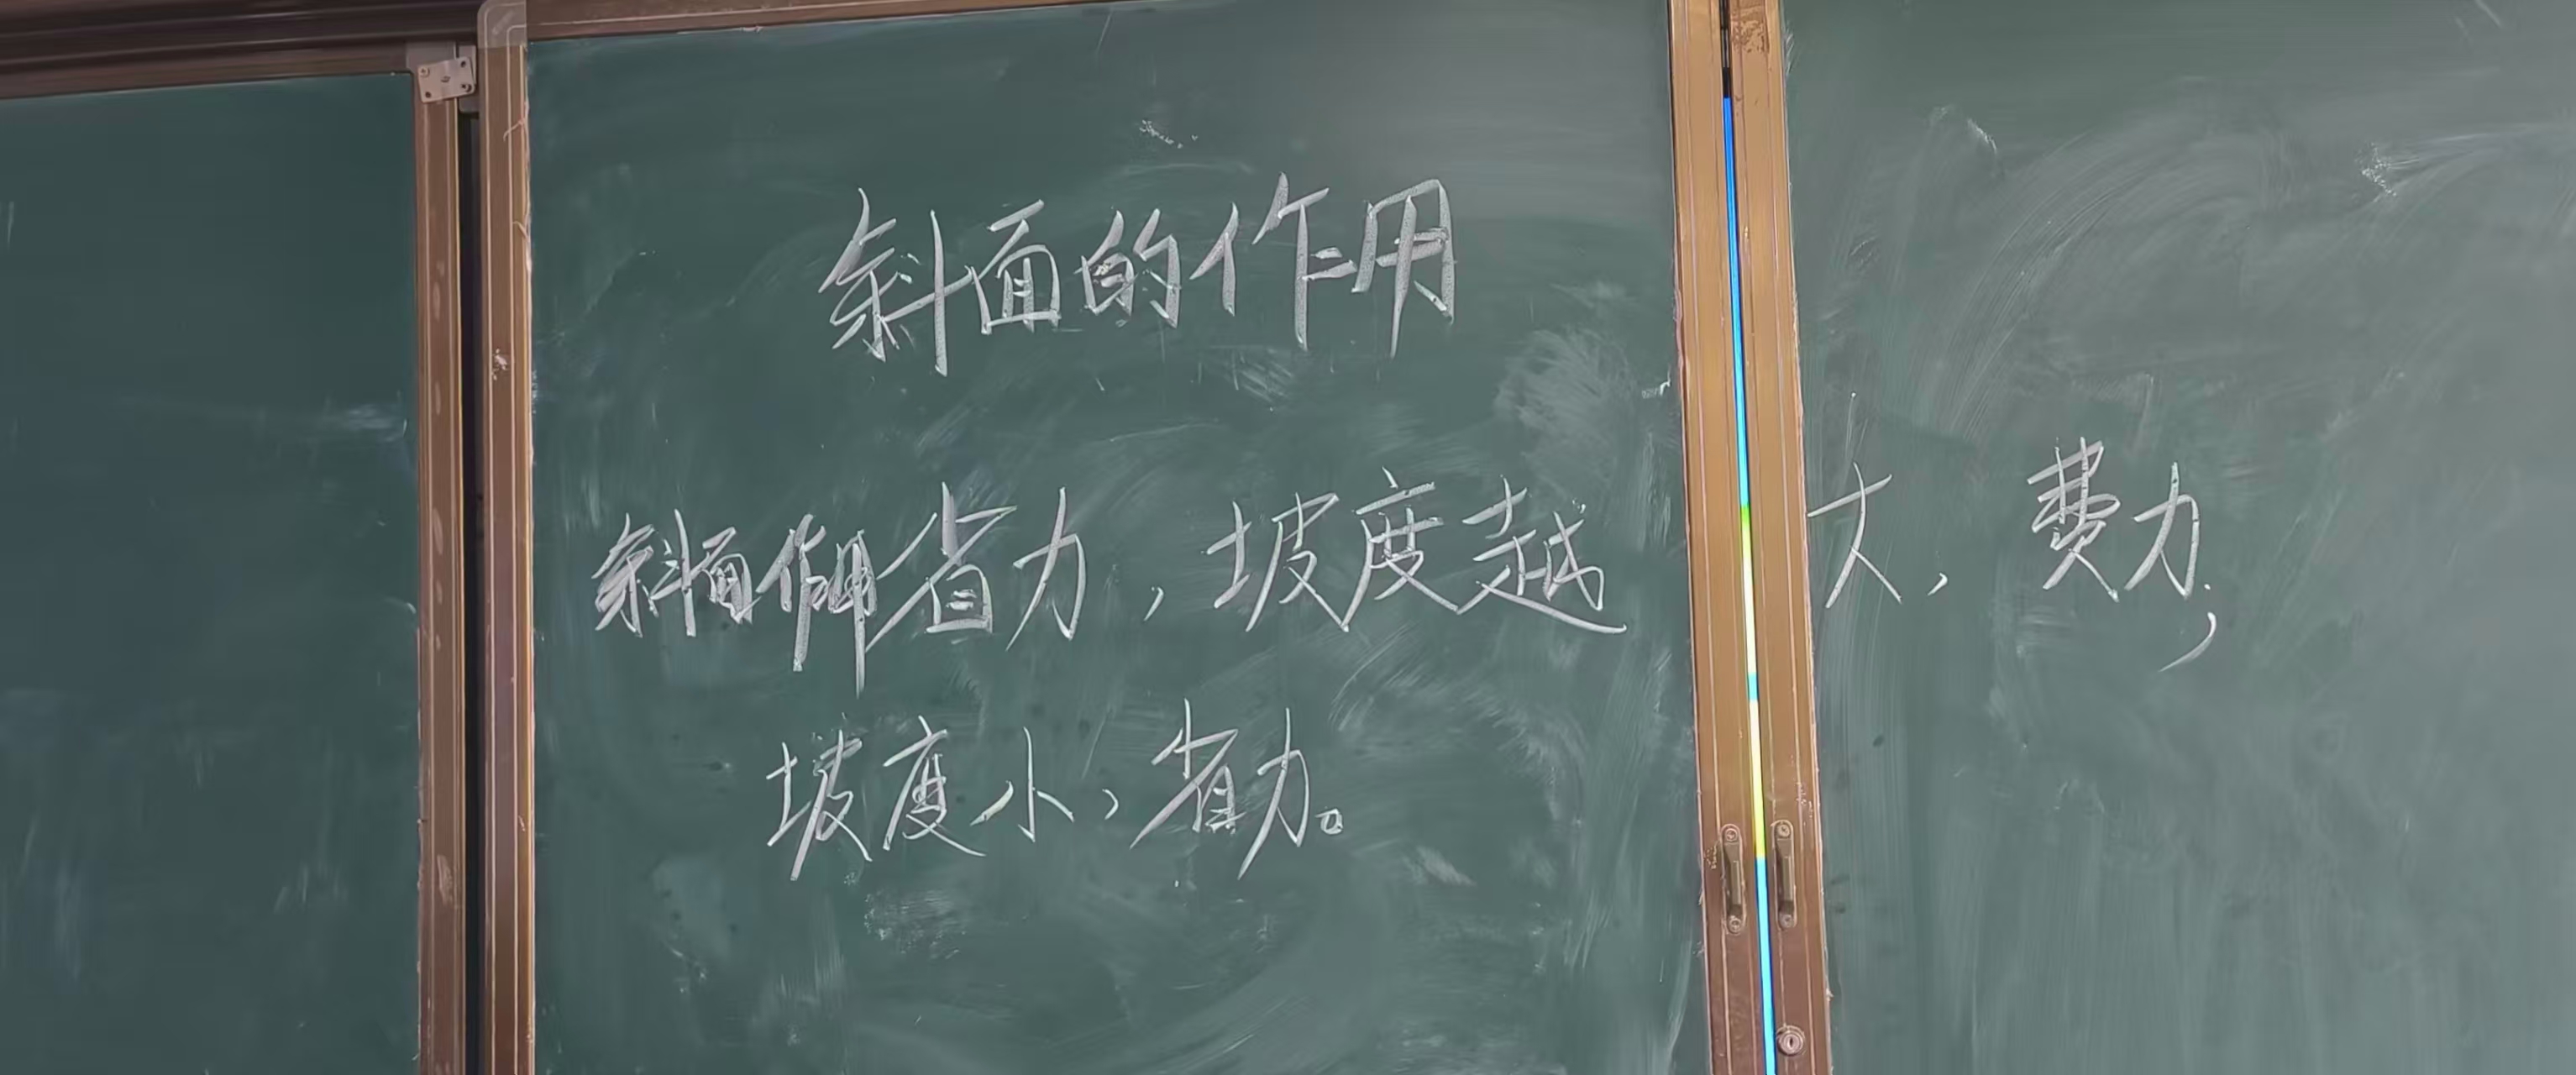 斜面的作用
斜面作用省力，坡度越大，费力，
坡度小，省力。